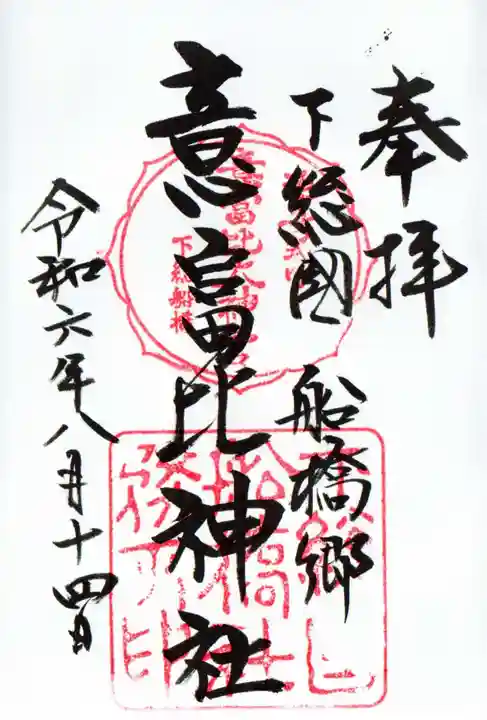 奉拝
下総國 船橋郷
意富比神社
令和六年八月十四日
下総船橋